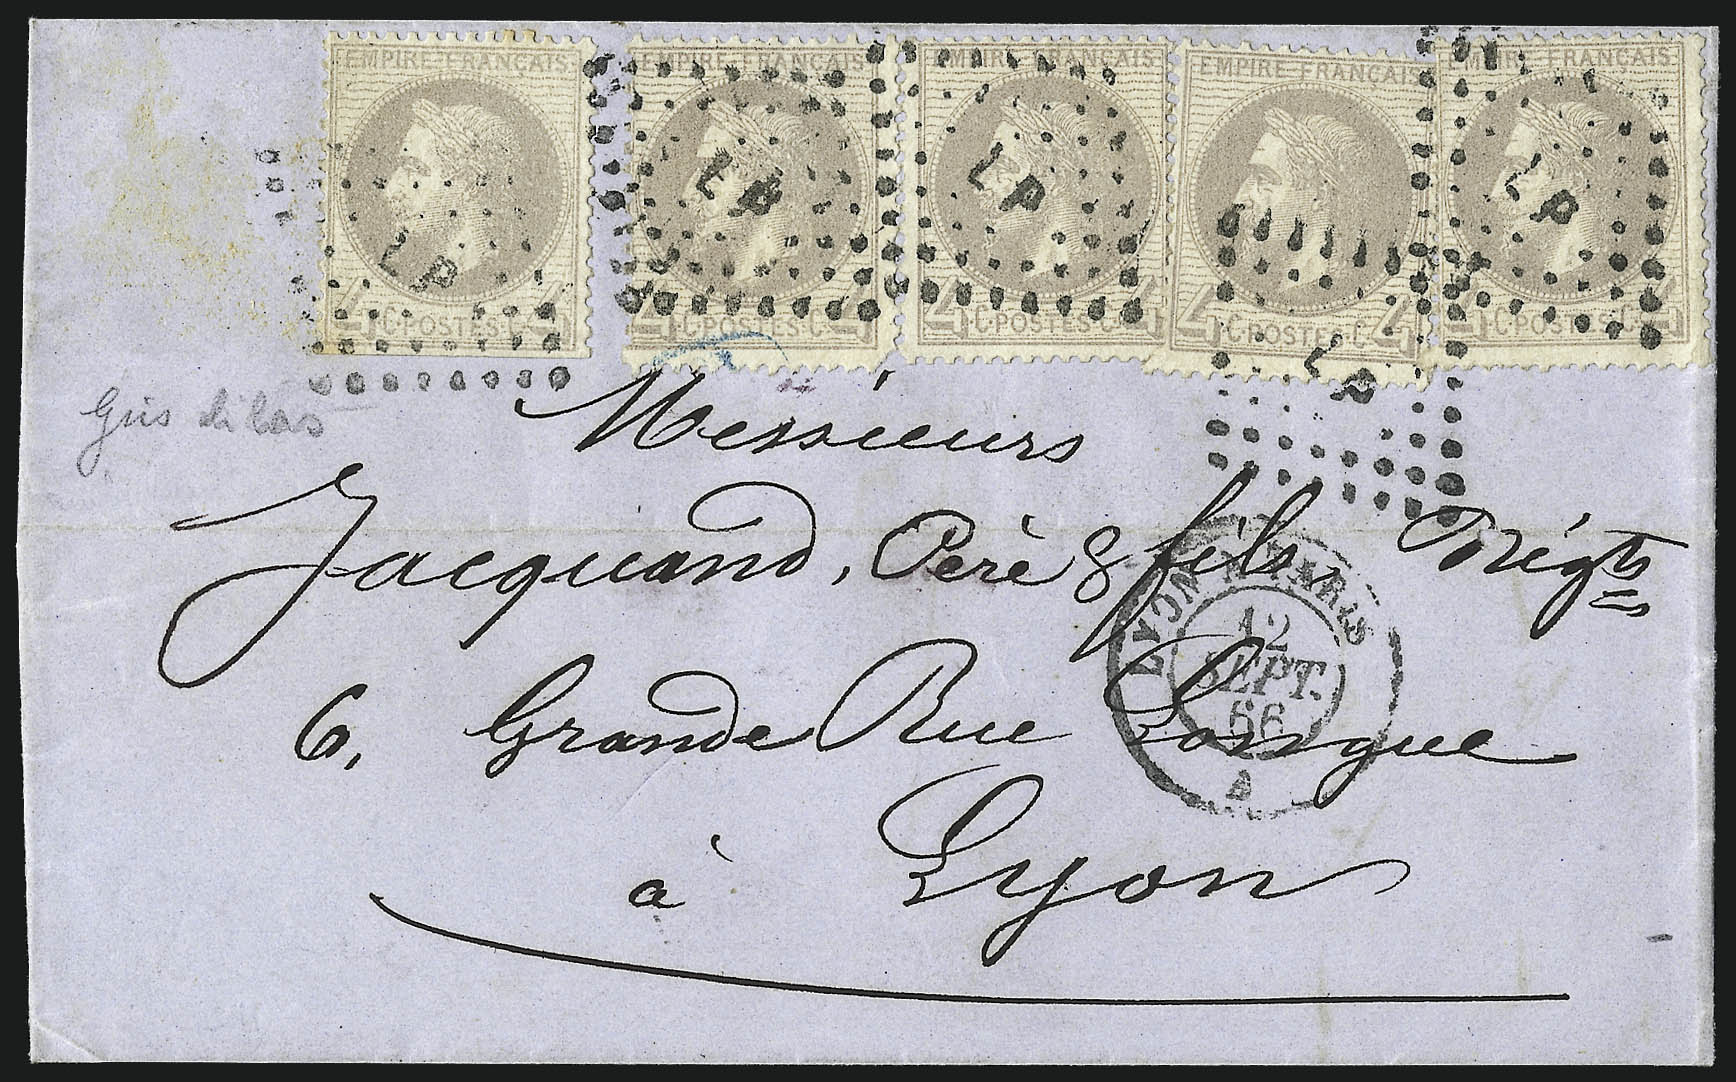 EMPIRE FRANÇAIS EMPIRE FRANÇAIS EMPIRE FRANÇAIS EMPIRE FRANÇAIS EMPIRE FRANÇAIS
LP LP LP LP LP
4 C. POSTES C. 4 4 C. POSTES C. 4 4 C. POSTES C. 4 4 C. POSTES C. 4 4 C. POSTES C. 4
Gris lilas
Messieurs
Jacquand, Père & fils, Négts
LYON A PARIS
12
SEPT.
66
A
6, Grande Rue Longue
à Lyon